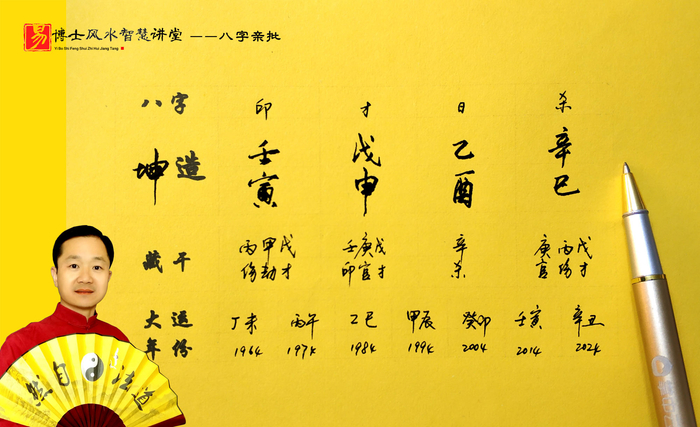 易 博士风水智慧讲堂 ——八字亲批
Yi Bo Shi Feng Shui Zhi Hui Jiang Tang
八字 印 才 日 杀
坤造 壬寅 戊申 乙酉 辛巳
藏干 丙甲戊 壬庚戊 辛 庚丙戊
伤劫才 印官才 杀 官伤才
大运 丁未 丙午 乙巳 甲辰 癸卯 壬寅 辛丑
年份 1964 1974 1984 1994 2004 2014 2024
然自法道